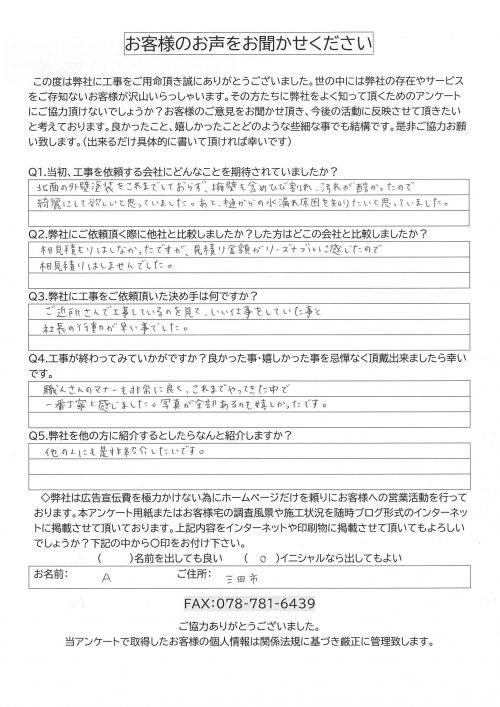 お客様のお声をお聞かせください
この度は弊社に工事をご用命頂き誠にありがとうございました。世の中には弊社の存在やサービス
をご存知ないお客様が沢山いらっしゃいます。その方たちに弊社をよく知って頂くためのアンケート
にご協力頂けないでしょうか？お客様のご意見をお聞かせ頂き、今後の活動に反映させて頂きたい
と考えております。良かったこと、嬉しかったことどのような些細な事でも結構です。是非ご協力お願
い致します。（出来るだけ具体的に書いて頂ければ幸いです）
Q1.当初、工事を依頼する会社にどんなことを期待されていましたか？
北面の外壁塗装をこれまでしておらず、擁壁も含めひび割れ、汚れが酷かったので
綺麗にして欲しいと思っていました。あと、樋からの水漏れ原因を知りたいと思っていました。
Q2.弊社にご依頼頂く際に他社と比較しましたか？した方はどこの会社と比較しましたか？
相見積もりはしなかったですが、見積り金額がリーズナブルに感じたので
相見積りはしませんでした。
Q3.弊社に工事をご依頼頂いた決め手は何ですか？
ご近所さんで工事しているのを見て、いい仕事をしていた事と
社長の行動が早い事でした。
Q4.工事が終わってみていかがですか？良かった事・嬉しかった事を忌憚なく頂戴出来ましたら幸い
です。
職人さんのマナーも非常に良く、これまでやってきた中で
一番丁寧と感じました。写真が全部あるのも嬉しかったです。
Q5.弊社を他の方に紹介するとしたらなんと紹介しますか？
他の人にも是非紹介したいです。
◇弊社は広告宣伝費を極力かけない為にホームページだけを頼りにお客様への営業活動を行って
おります。本アンケート用紙またはお客様宅の調査風景や施工状況を随時ブログ形式のインターネッ
トに掲載させて頂いております。上記内容をインターネットや印刷物に掲載させて頂いてもよろしい
でしょうか？下記の中から〇印をお付け下さい。
（　　）名前を出しても良い　（　〇　）イニシャルなら出してもよい
お名前：　A　ご住所：　三田市
FAX：078-781-6439
ご協力ありがとうございました。
当アンケートで取得したお客様の個人情報は関係法規に基づき厳正に管理致します。